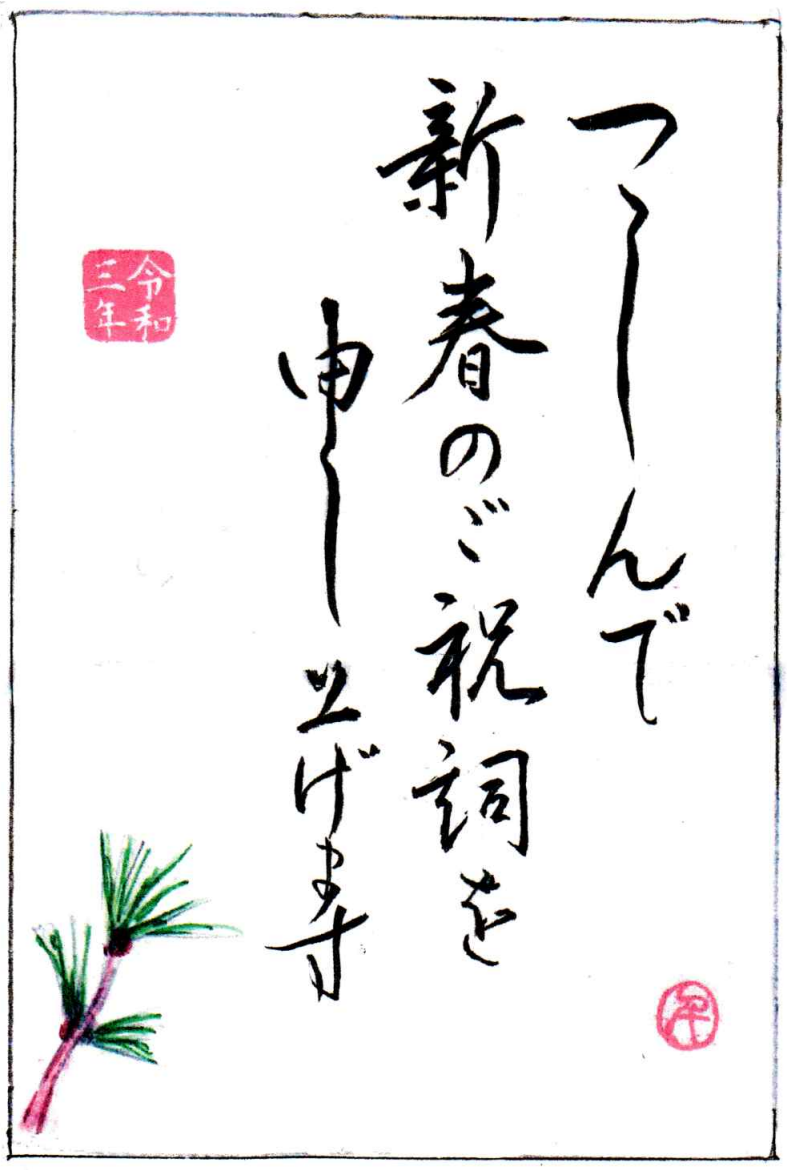 つゝしんで
新春のご祝詞を
申し上げます
令和
三年